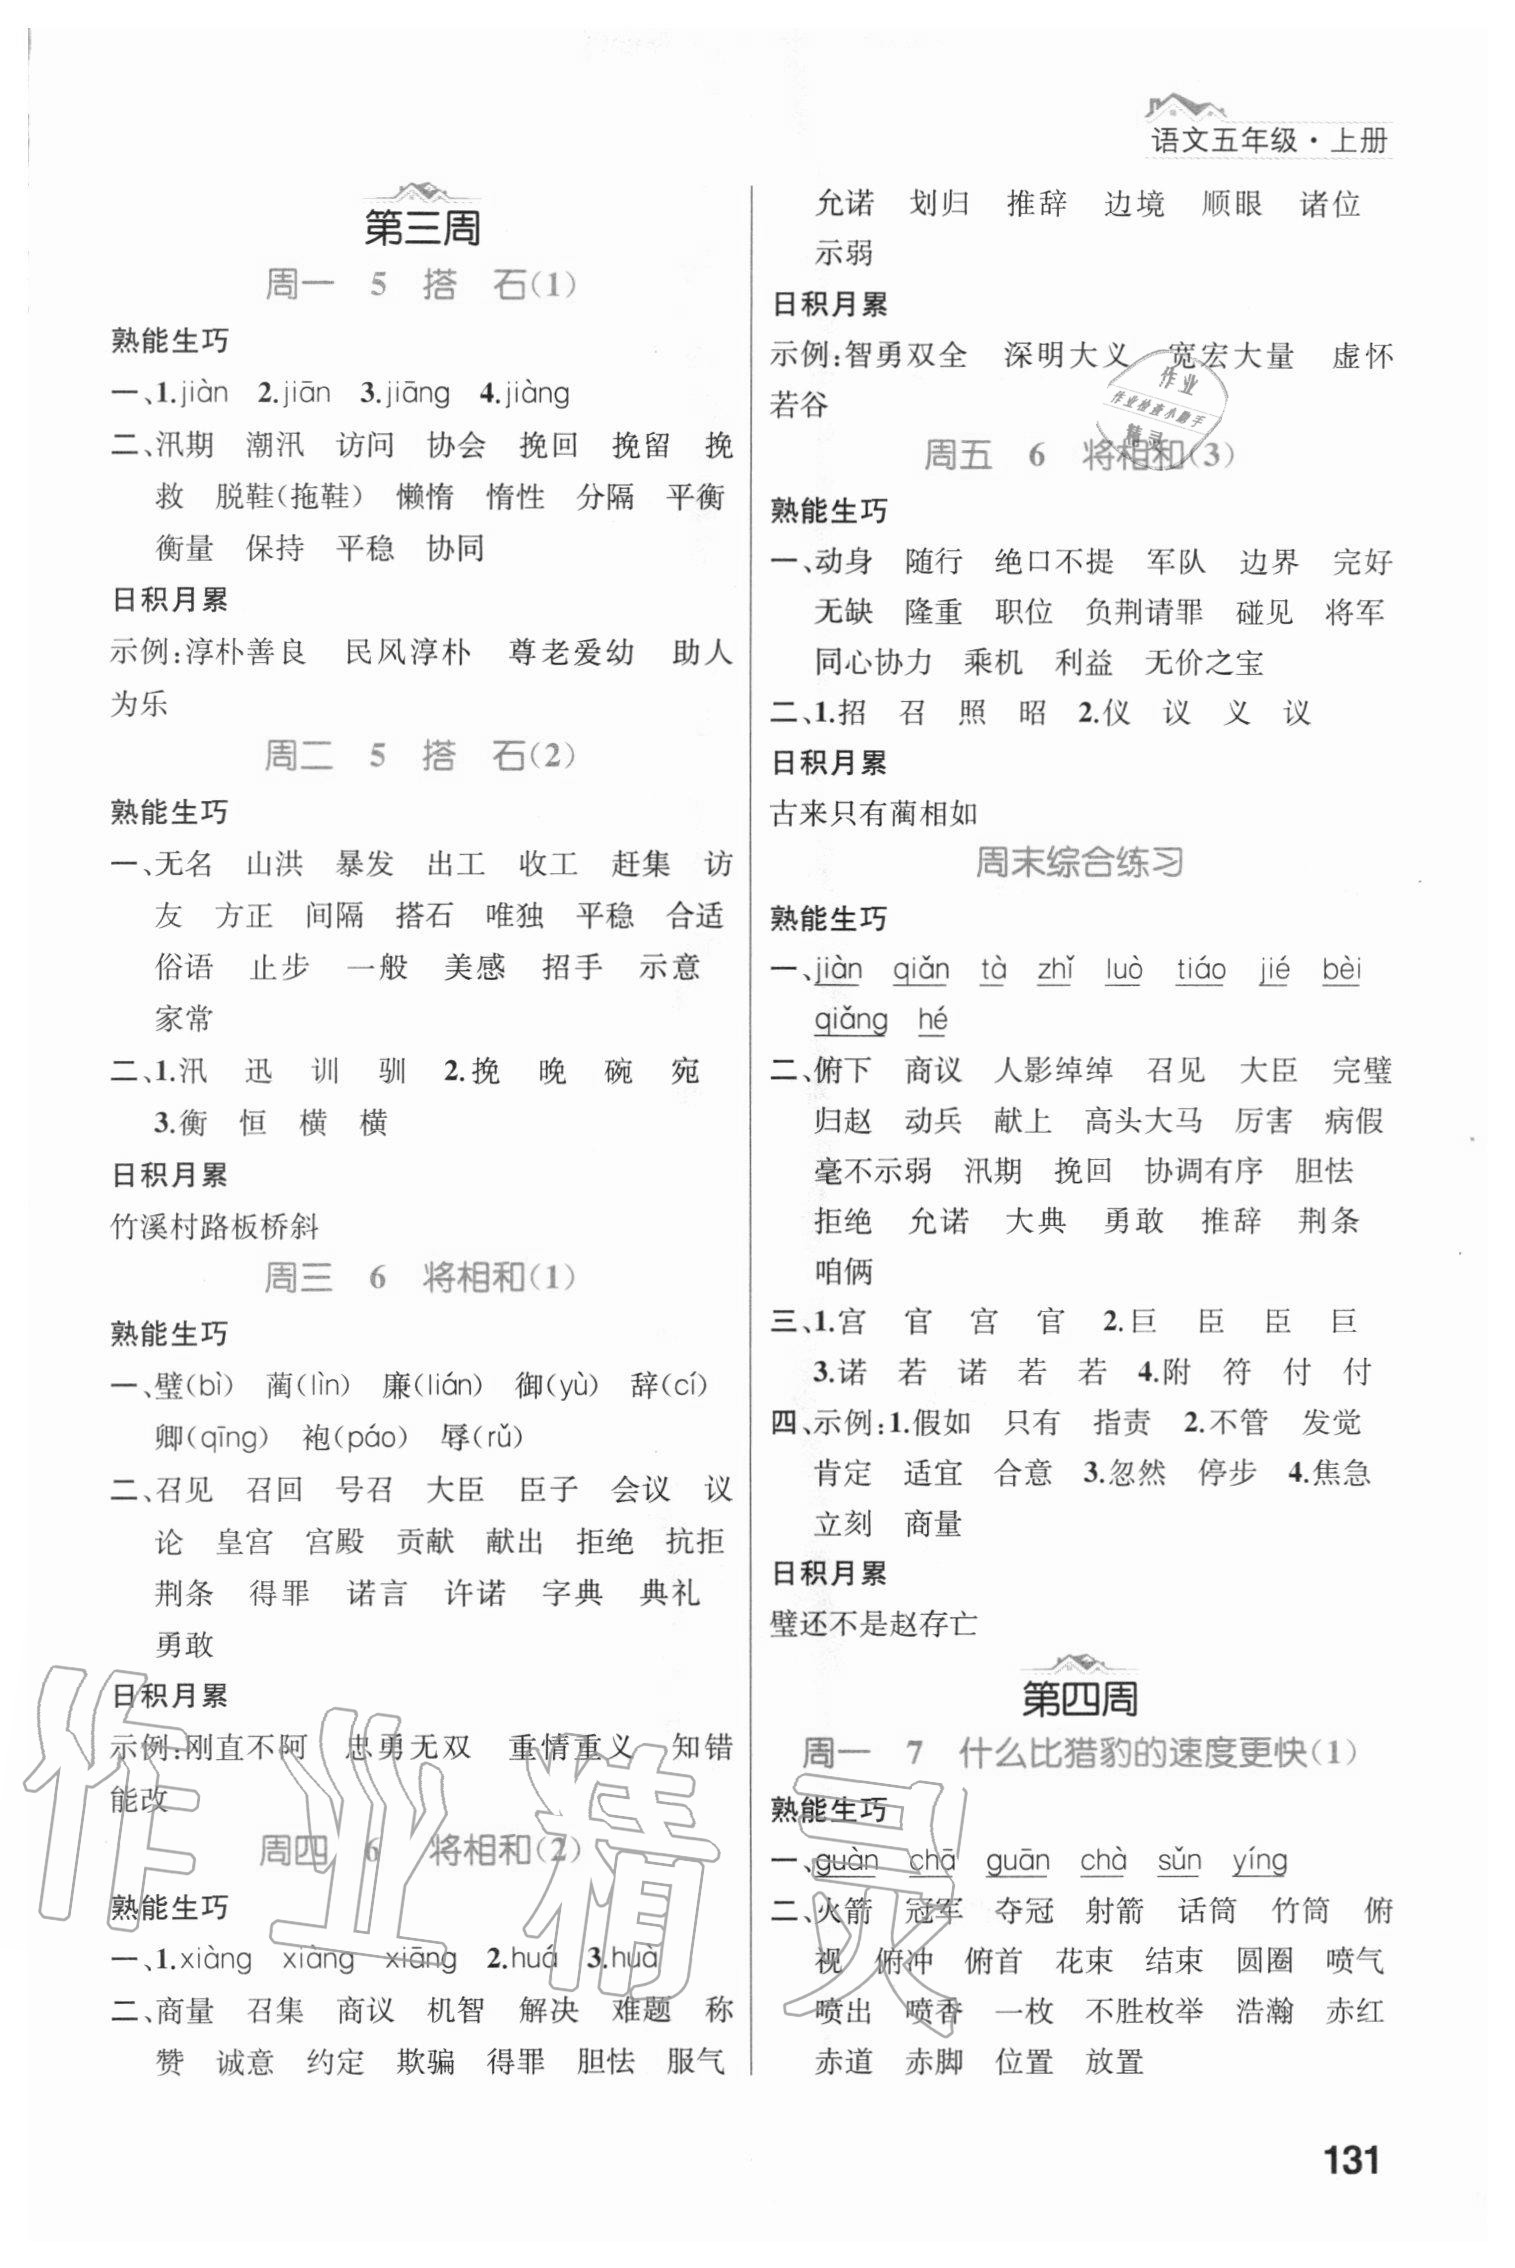 语文五年级·上册
第三周
周一 5 搭 石(1)
熟能生巧
一、1.jiàn 2.jiān 3.jiāng 4.jiàng
二、汛期 潮汛 访问 协会 挽回 挽留 挽
救 脱鞋(拖鞋) 懒惰 惰性 分隔 平衡
衡量 保持 平稳 协同
日积月累
示例:淳朴善良 民风淳朴 尊老爱幼 助人
为乐
周二 5 搭 石(2)
熟能生巧
一、无名 山洪 暴发 出工 收工 赶集 访
友 方正 间隔 搭石 唯独 平稳 合适
俗语 止步 一般 美感 招手 示意
家常
二、1.汛 迅 训 驯 2.挽 晚 碗 宛
3.衡 恒 横 横
日积月累
竹溪村路板桥斜
周三 6 将相和(1)
熟能生巧
一、璧(bì) 蔺(lìn) 廉(lián) 御(yù) 辞(cí)
卿(qīng) 袍(páo) 辱(rǔ)
二、召见 召回 号召 大臣 臣子 会议 议
论 皇宫 宫殿 贡献 献出 拒绝 抗拒
荆条 得罪 诺言 许诺 字典 典礼
勇敢
日积月累
示例:刚直不阿 忠勇无双 重情重义 知错
能改
周四 6 将相和(2)
熟能生巧
一、1.xiàng xiàng xiāng 2.huá 3.huà
二、商量 召集 商议 机智 解决 难题 称
赞 诚意 约定 欺骗 得罪 胆怯 服气
允诺 划归 推辞 边境 顺眼 诸位
示弱
日积月累
示例:智勇双全 深明大义 宽宏大量 虚怀
若谷
周五 6 将相和(3)
熟能生巧
一、动身 随行 绝口不提 军队 边界 完好
无缺 隆重 职位 负荆请罪 碰见 将军
同心协力 乘机 利益 无价之宝
二、1.招 召 照 昭 2.仪 议 义 议
日积月累
古来只有蔺相如
周末综合练习
熟能生巧
一、jiàn qiǎn tà zhǐ luò tiáo jié bèi
qiǎng hé
二、俯下 商议 人影绰绰 召见 大臣 完璧
归赵 动兵 献上 高头大马 厉害 病假
毫不示弱 汛期 挽回 协调有序 胆怯
拒绝 允诺 大典 勇敢 推辞 荆条
咱俩
三、1.宫 官 宫 官 2.巨 臣 臣 巨
3.诺 若 诺 若 若 4.附 符 付 付
四、示例:1.假如 只有 指责 2.不管 发觉
肯定 适宜 合意 3.忽然 停步 4.焦急
立刻 商量
日积月累
璧还不是赵存亡
第四周
周一 7 什么比猎豹的速度更快(1)
熟能生巧
一、guàn chā guān chà sǔn yíng
二、火箭 冠军 夺冠 射箭 话筒 竹筒 俯
视 俯冲 俯首 花束 结束 圆圈 喷气
喷出 喷香 一枚 不胜枚举 浩瀚 赤红
赤道 赤脚 位置 放置
131
作业
作业检查小助手
精灵
作业精灵